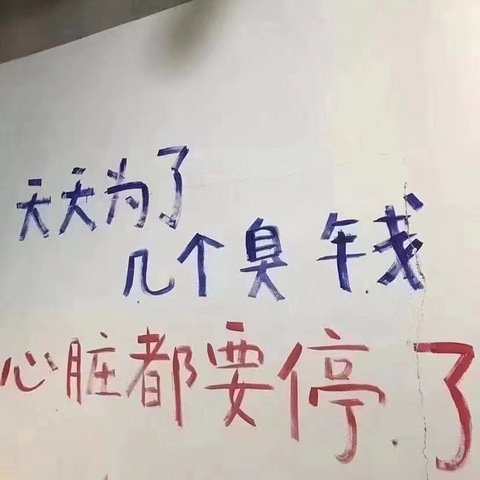 天天为了
几个臭钱
心脏都要停了